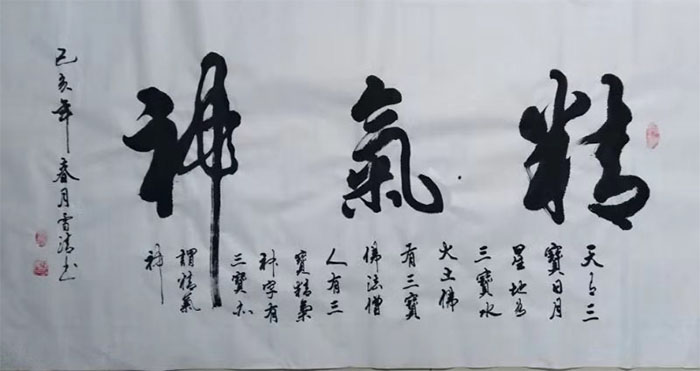 精氣神
天有三
寶日月
星地有
三寶水
火土佛
有三寶
佛法僧
人有三
寶精氣
神字有
三寶亦
謂精氣
神
己亥年春月雪清书